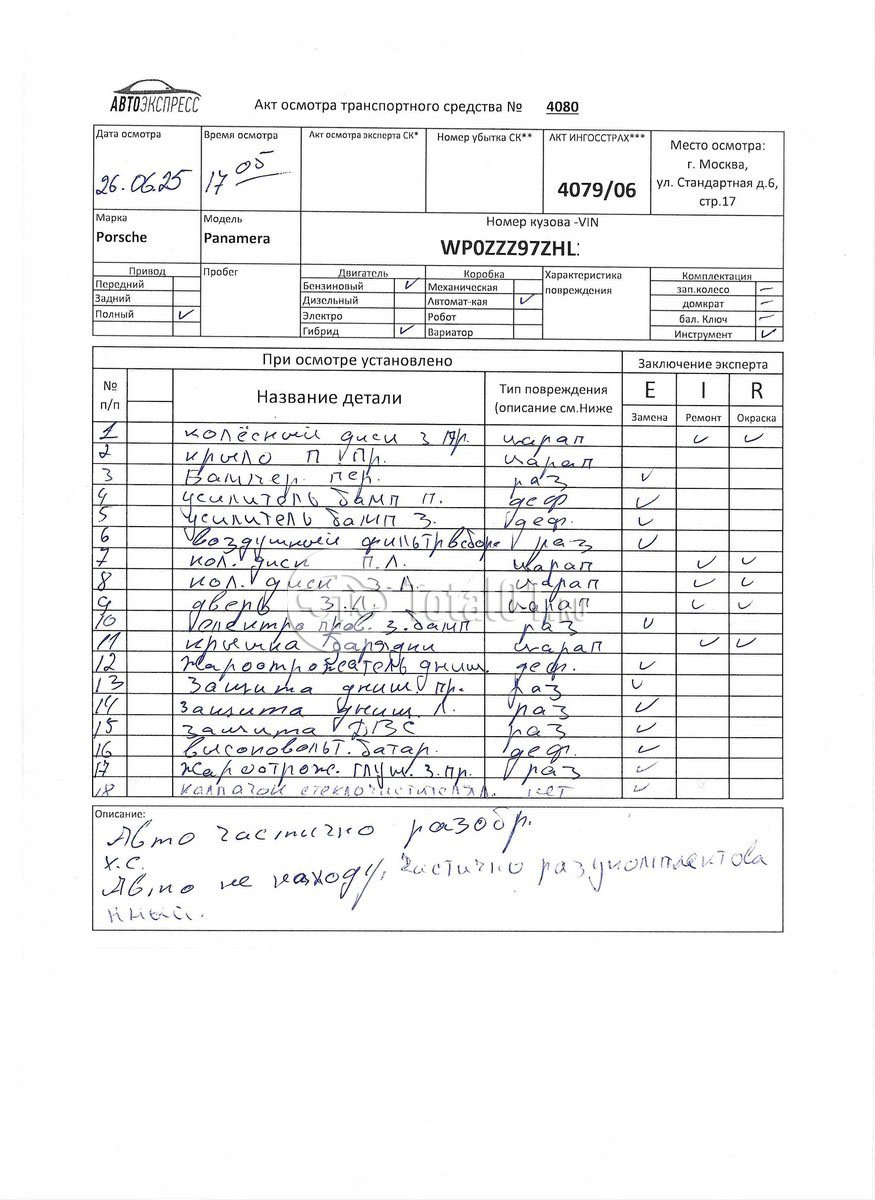 АВТОЭКСПРЕСС
Акт осмотра транспортного средства № 4080
Дата осмотра Время осмотра Акт осмотра эксперта СК* Номер убытка СК** АКТ ИНГОССТРАХ*** Место осмотра:
г. Москва,
ул. Стандартная д.6,
стр.17
26.06.25 17 05 4079/06
Марка Модель Номер кузова -VIN
Porsche Panamera WP0ZZZ97ZHL:
Привод Пробег Двигатель Коробка Характеристика повреждения Комплектация
Передний Бензиновый ✓ Механическая зап.колесо —
Задний Дизельный Автомат-кая ✓ домкрат —
Полный ✓ Электро Робот бал. Ключ —
Гибрид ✓ Вариатор Инструмент ✓
При осмотре установлено Заключение эксперта
№ п/п Название детали Тип повреждения (описание см.Ниже E I R
Замена Ремонт Окраска
1 колёсный диск з пр. царап ✓ ✓
2 крыло п пр. царап
3 Бампер пер. раз ✓
4 усилитель бамп п. деф ✓
5 усилитель бамп з. деф. ✓
6 воздушный фильтр в сборе раз ✓
7 кол. диск п.л. царап ✓ ✓
8 кол. диск з.л. царап ✓ ✓
9 дверь з.л. царап ✓ ✓
10 электро пров. з. бамп раз ✓
11 крышка зарядки царап ✓ ✓
12 жароотрожатель днищ. деф. ✓
13 защита днищ. пр. раз ✓
14 защита днищ л. раз ✓
15 защита ДВС раз ✓
16 высоковольт. батар. деф. ✓
17 жароотрож. глуш. з. пр. раз ✓
18 колпачок стеклоочистителя л. нет ✓
Описание:
Авто частично разобр.
Х.С.
Авто не находу, частично разукомплектова
нный.
Total01.ru